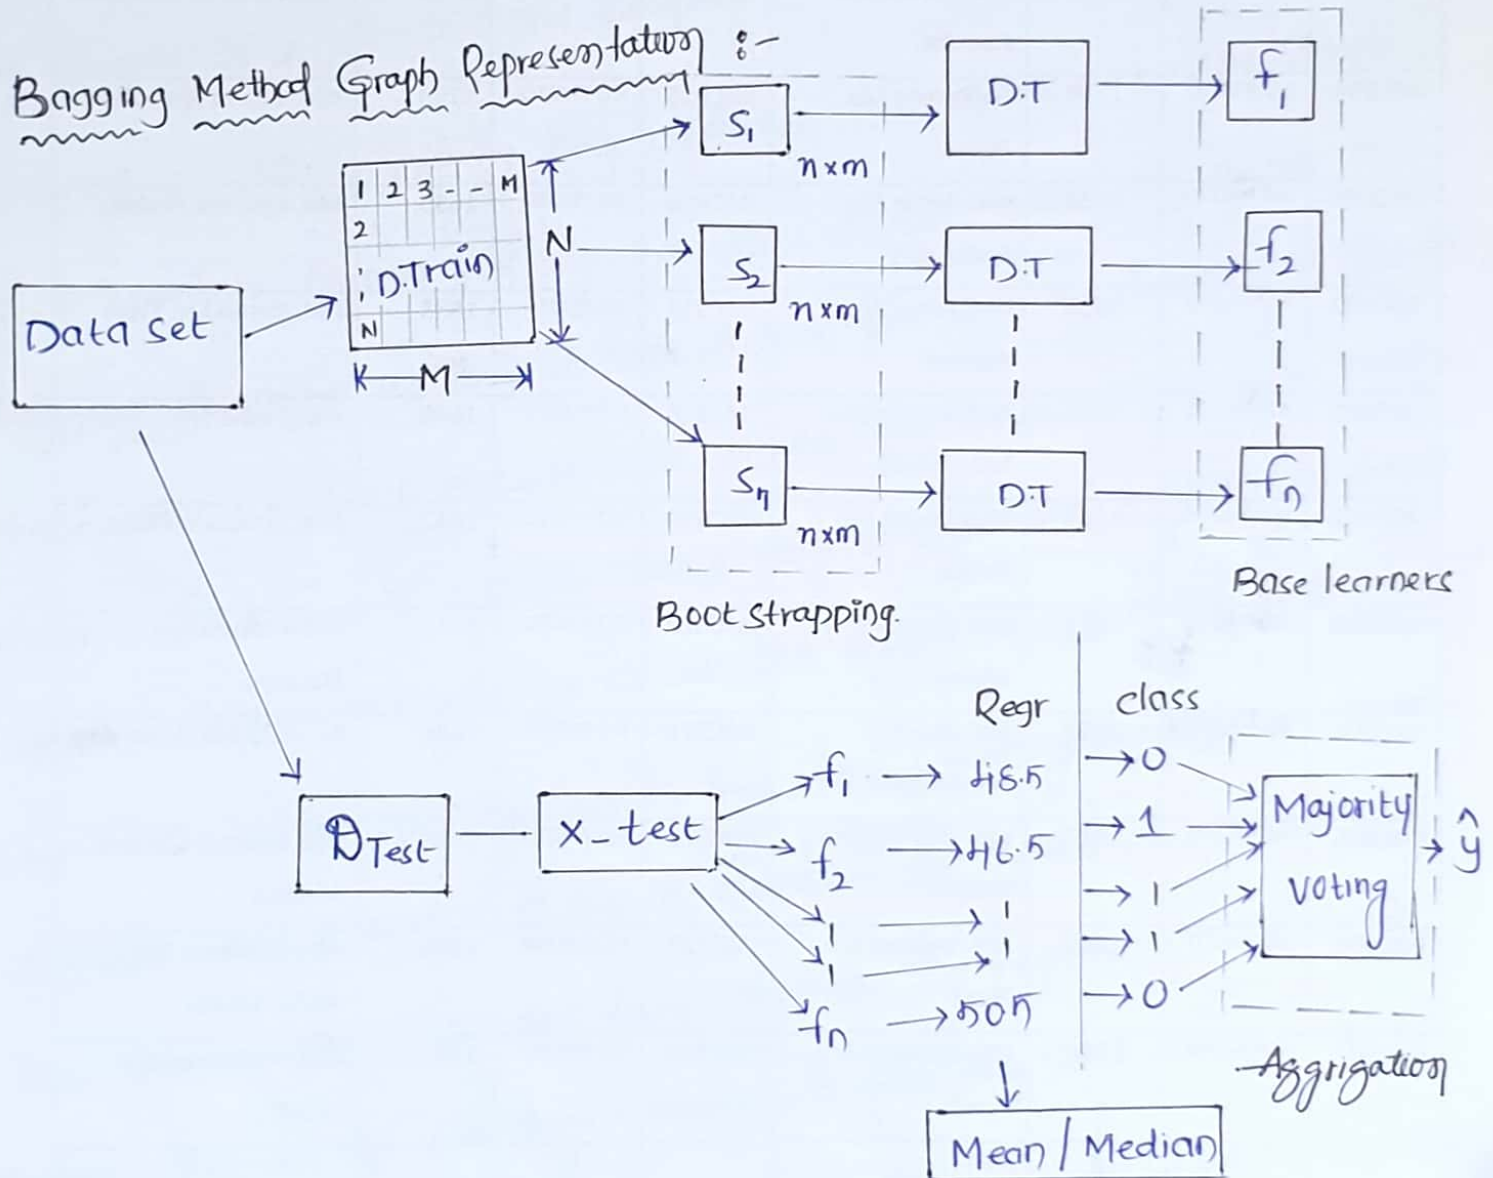 Bagging Method Graph Representation :-
S1
n×m
D.T
f1
1 2 3 - - M
2
D.Train
N
N
M
S2
n×m
D.T
f2
Data set
Sn
n×m
D.T
fn
Boot strapping.
Base learners
Regr
class
DTest
X_test
f1 → 48.5
→ 0
f2 → 46.5
→ 1
→ 1
→ 1
fn → 505
→ 0
Majority
voting
ŷ
Aggrigation
Mean / Median